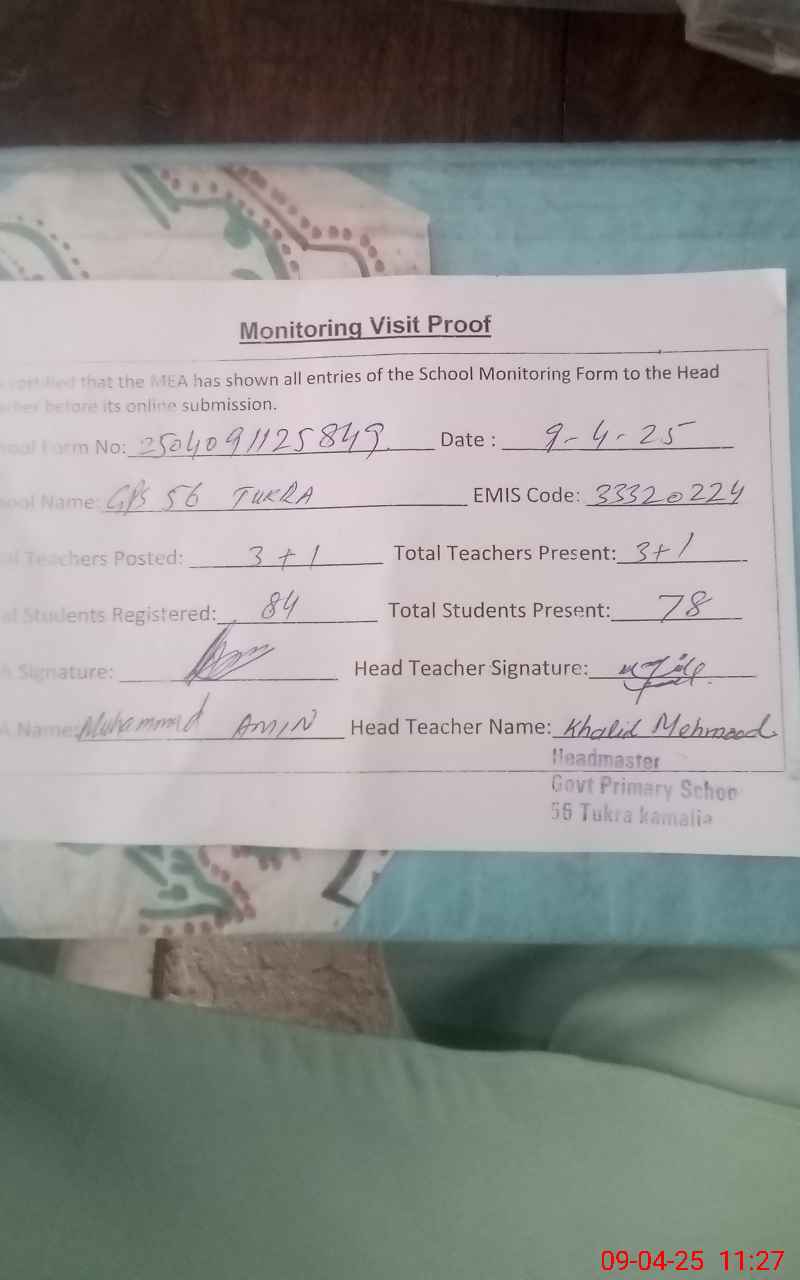 Monitoring Visit Proof
certified that the MEA has shown all entries of the School Monitoring Form to the Head
before its online submission.
Form No: 2504091125849 Date : 9-4-25
Name: GPS 56 TUKRA EMIS Code: 33320224
Teachers Posted: 3+1 Total Teachers Present: 3+1
Students Registered: 84 Total Students Present: 78
Signature: Head Teacher Signature:
Name: Muhammad AMIN Head Teacher Name: Khalid Mehmood
Headmaster
Govt Primary Schoo
56 Tukra kamalia
09-04-25 11:27